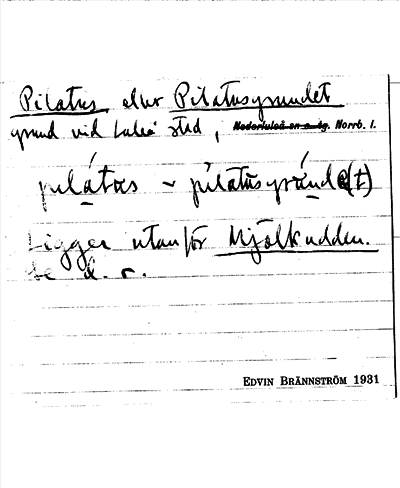 Pilatus eller Pilatusgrundet
grund vid Luleå stad, Nederluleå sn o. tg. Norrb. l.
pilátus ~ pilatusgrúnde(t)
Ligger utanför Mjölkudden.
Se d. o.
EDVIN BRÄNNSTRÖM 1931